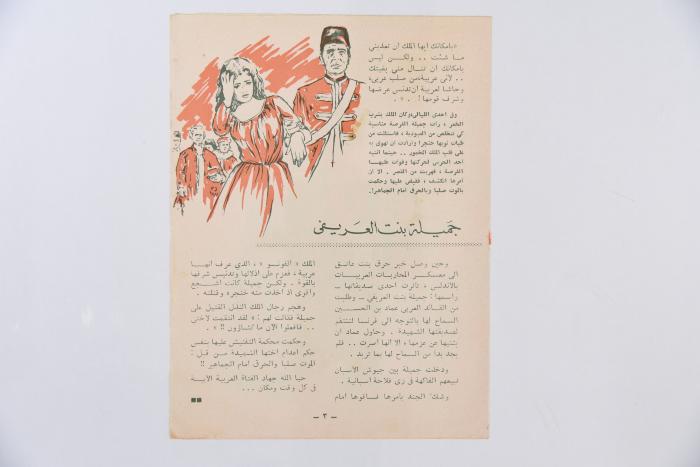 « بامكانك أيها الملك أن تعذبني
ما شئت .. ولكن ليس
بامكانك أن تنال مني بغيتك
.. لأني عربية،من صلب عربي،
وحاشا لعربية أن تدنس عرضها
وشرف قومها ! . » .
وفي احدى الليالي،وكان الملك يشرب
الخمر ، رأت جميلة الفرصة مناسبة
كي تتخلص من العبودية ، فاستلت من
طيات ثوبها خنجرا وارادت ان تهوي به
على قلب الملك المخمور .. حينما انتبه
احد الحرس لحركتها وفوات عليهـا
الفرصة ، فهربت من القصر . الا ان
أمرها انكشف ، فقبض عليها وحكمت
بالموت صلبا وبالحرق امام الجماهير!.
جميلة بنت العريفي
وحين وصل خبر حرق بنت عاتق
الى معسكر المحاربات العربيات
بالأندلس ، تأثرت احدى صديقاتها ــ
واسمها : جميلة بنت العريفي ــ وطلبت
من القائد العربي عماد بن الحسـين
السماح لها بالتوجه الى فرنسا لتنتقم
لصديقتها الشهيدة . وحاول عماد أن
يثنيها عن عزمها ، الا أنها أصرت .. فلم
يجد بدا من السماح لها بما تريد .
ودخلت جميلة بين جيوش الاسبان
تبيعهم الفاكهة في زي فلاحة اسبانية .
وشك الجند بأمرها فساقوها أمام
الملك « ألفونسو » ، الذي عرف أنهـا
عربية ، فعزم على اذلالها وتدنيس شرفها
بالقوة . ولكن جميلة كانت أشـجع
وأقوى اذ أخذت منه خنجره وقتلته .
وهجم رجال الملك النذل القتيل على
جميلة فقالت لهم : « لقد انتقمت لأختي
.. فافعلوا الآن ما تشاؤون !! » .
وحكمت محكمة التفتيش عليها بنفس
حكم اعدام أختها الشهيدة من قبل :
الموت صلبا والحرق أمام الجماهير !!
حيا الله جهاد الفتاة العربية الأبية
في كل وقت ومكان ...
ــ ٣ ــ